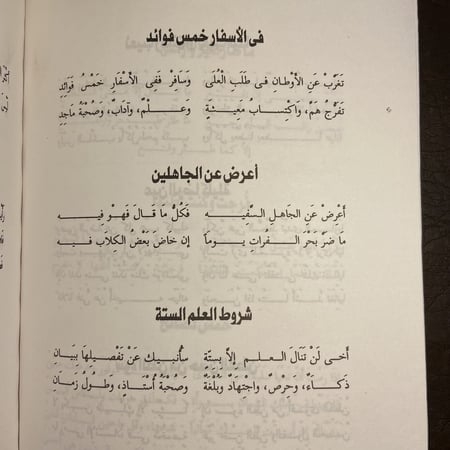 في الأسفار خمس فوائد
تَغَرَّبْ عَنِ الأَوْطَانِ فى طَلَبِ الْعُلَى وَسَافِرْ فَفِي الأَسْفَارِ خَمْسُ فَوَائِدِ
تَفَرُّجُ هَمٍّ، وَاكْتِسَابُ مَعِيشَةٍ وَعِلْمٌ، وَآدَابٌ، وَصُحْبَةُ مَاجِدِ
أعرض عن الجاهلين
أَعْرِضْ عَنِ الْجَاهِلِ السَّفِيهِ فَكُلُّ مَا قَالَ فَهُوَ فِيهِ
مَا ضَرَّ بَحْرَ الْفُرَاتِ يَوماً إن خَاضَ بَعْضُ الْكِلَابِ فِيهِ
شروط العلم الستة
أَخى لَنْ تَنَالَ الْعلم إلاَّ بِسِتَّةٍ سَأُنبِيكَ عَنْ تَفْصِيلِهَا بِبَيَانِ
ذَكَاءٌ، وَحِرْصٌ، وَاجْتِهَادٌ وَبُلْغَةٌ وَصُحْبَةُ أُسْتَاذٍ، وَطُولُ زَمَانِ